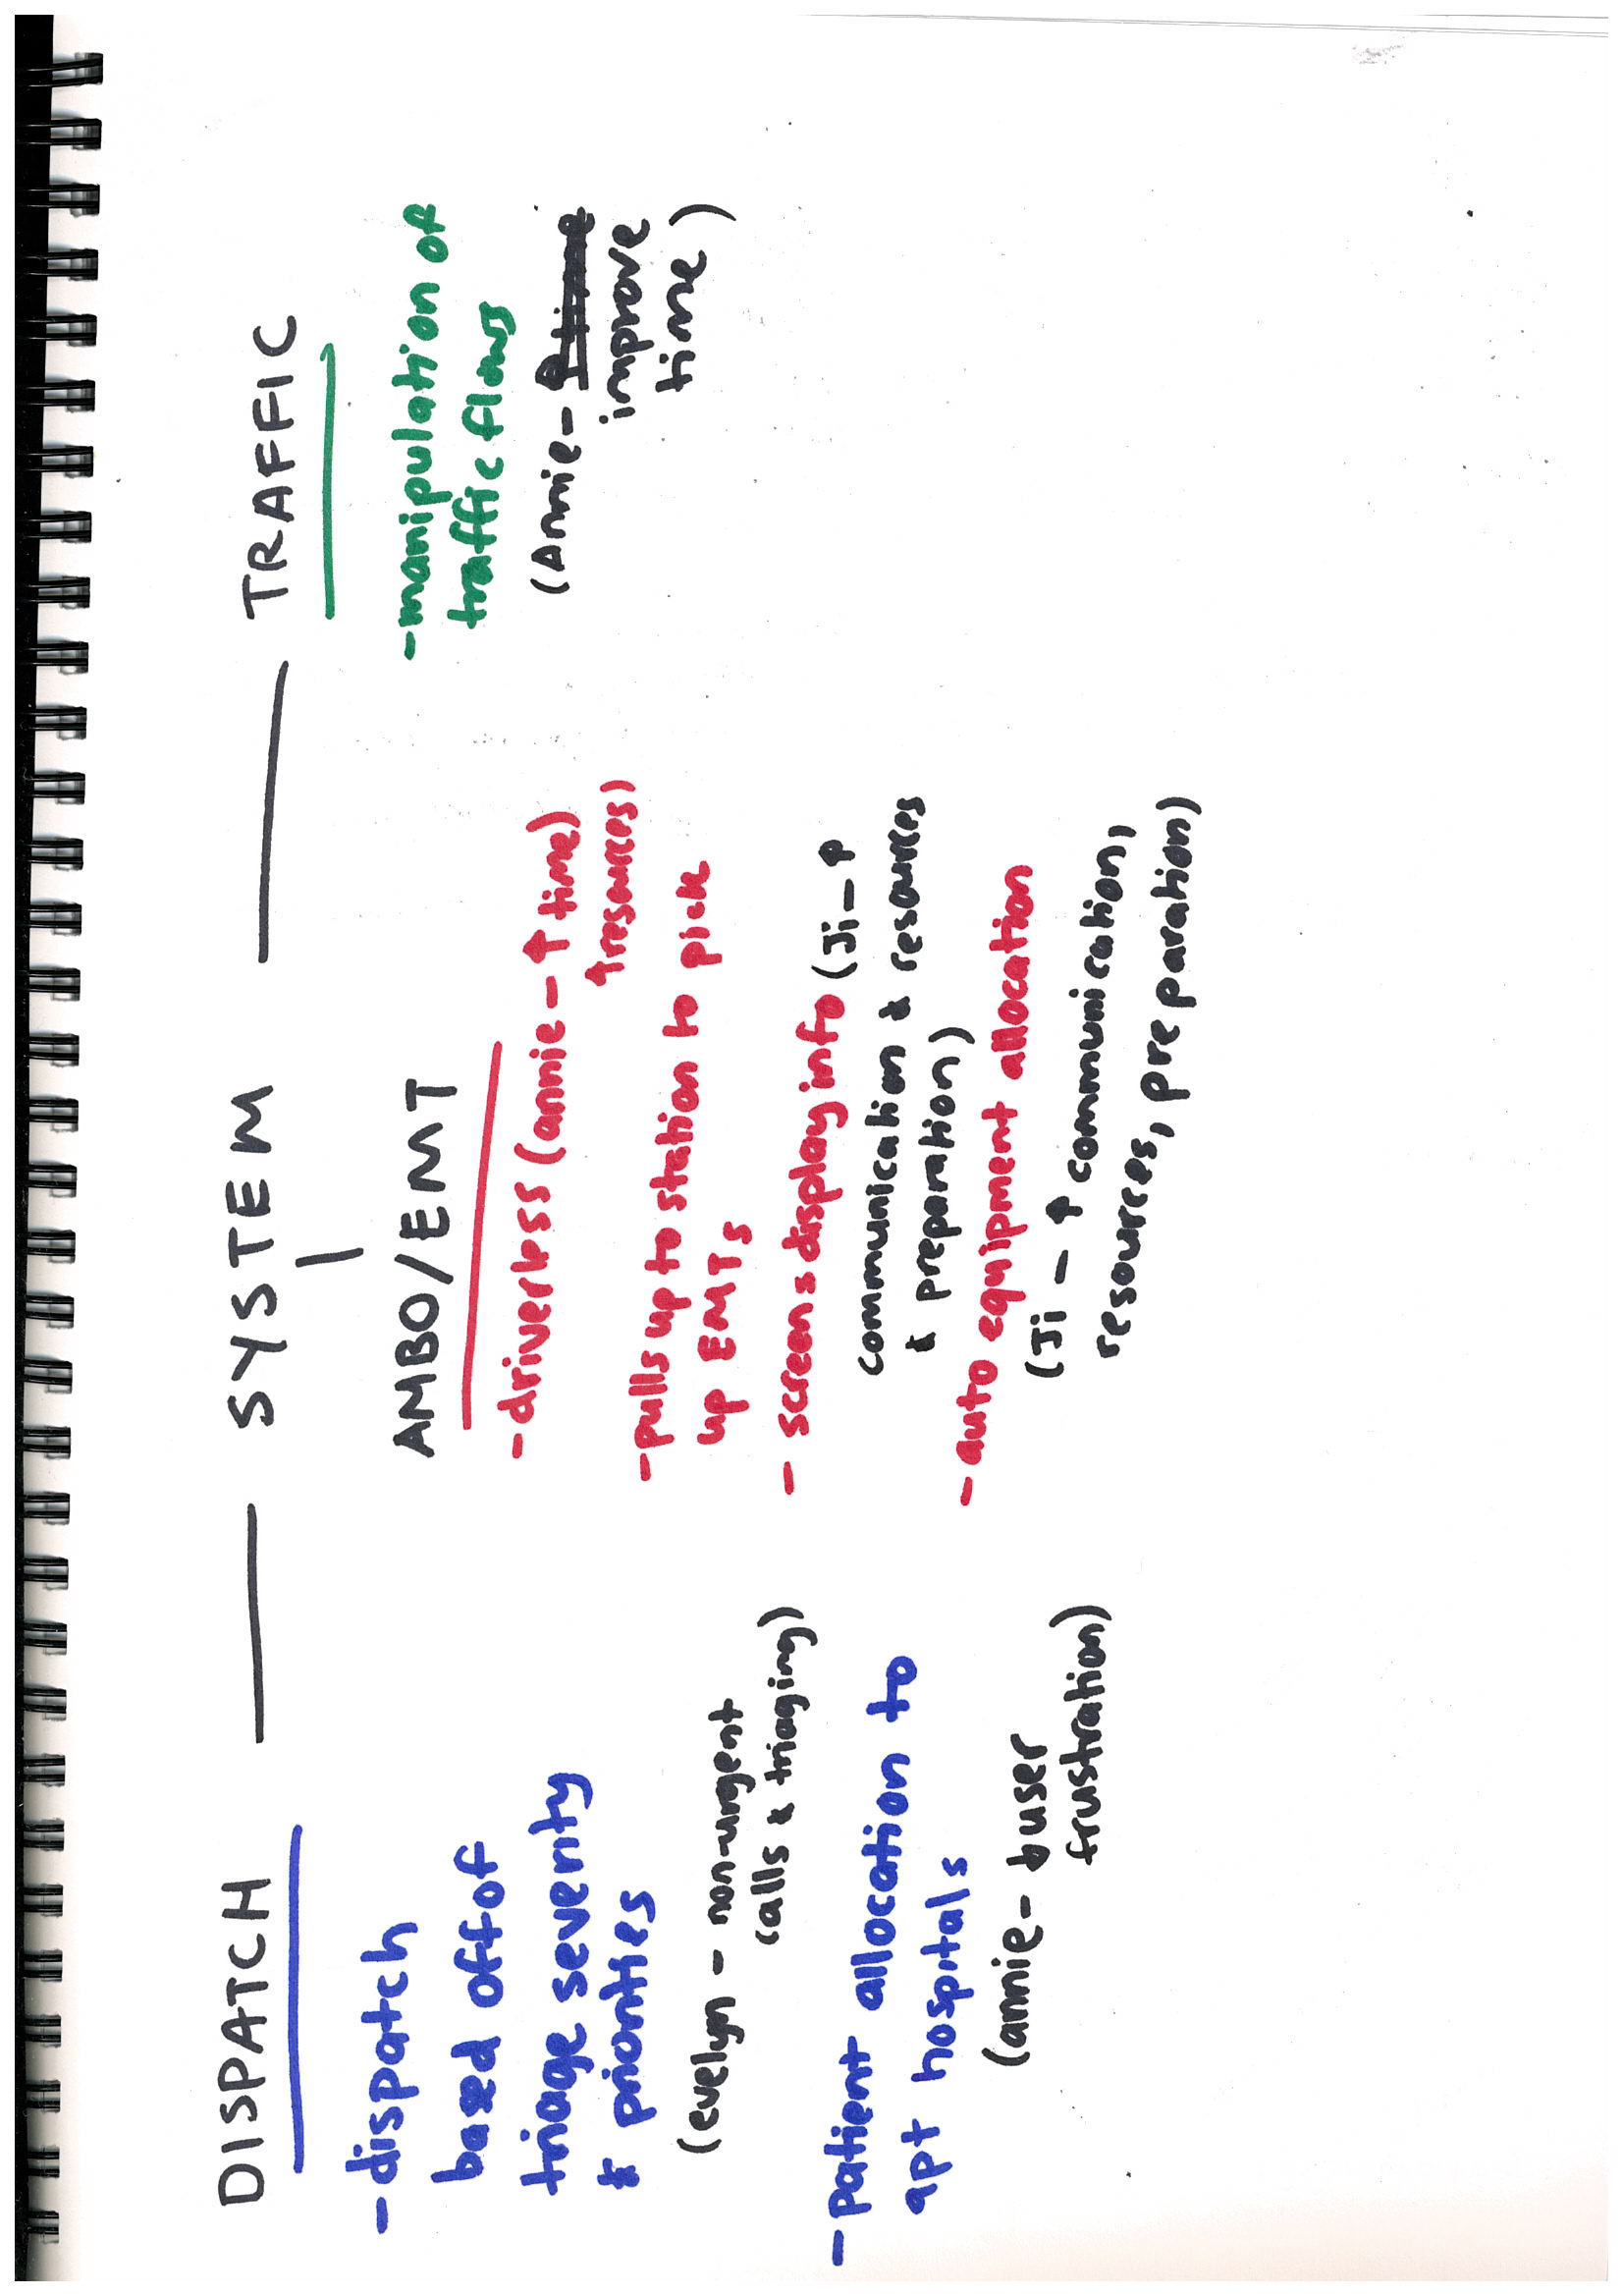 DISPATCH — SYSTEM — TRAFFIC
-dispatch
based off of
triage severity
& priorities
(evelyn - non-urgent
calls & triaging)
-patient allocation to
apt hospitals
(annie- ↓user
frustration)
AMBO/EMT
-driverless (annie-↑ time)
↑resources)
-pulls up to station to pick
up EMTs
- screens display info (Ji-↑
communication & resources
& preparation)
-auto equipment allocation
(Ji - ↑ communication,
resources, preparation)
-manipulation of
traffic flows
(Annie- ↑time
improve
time)